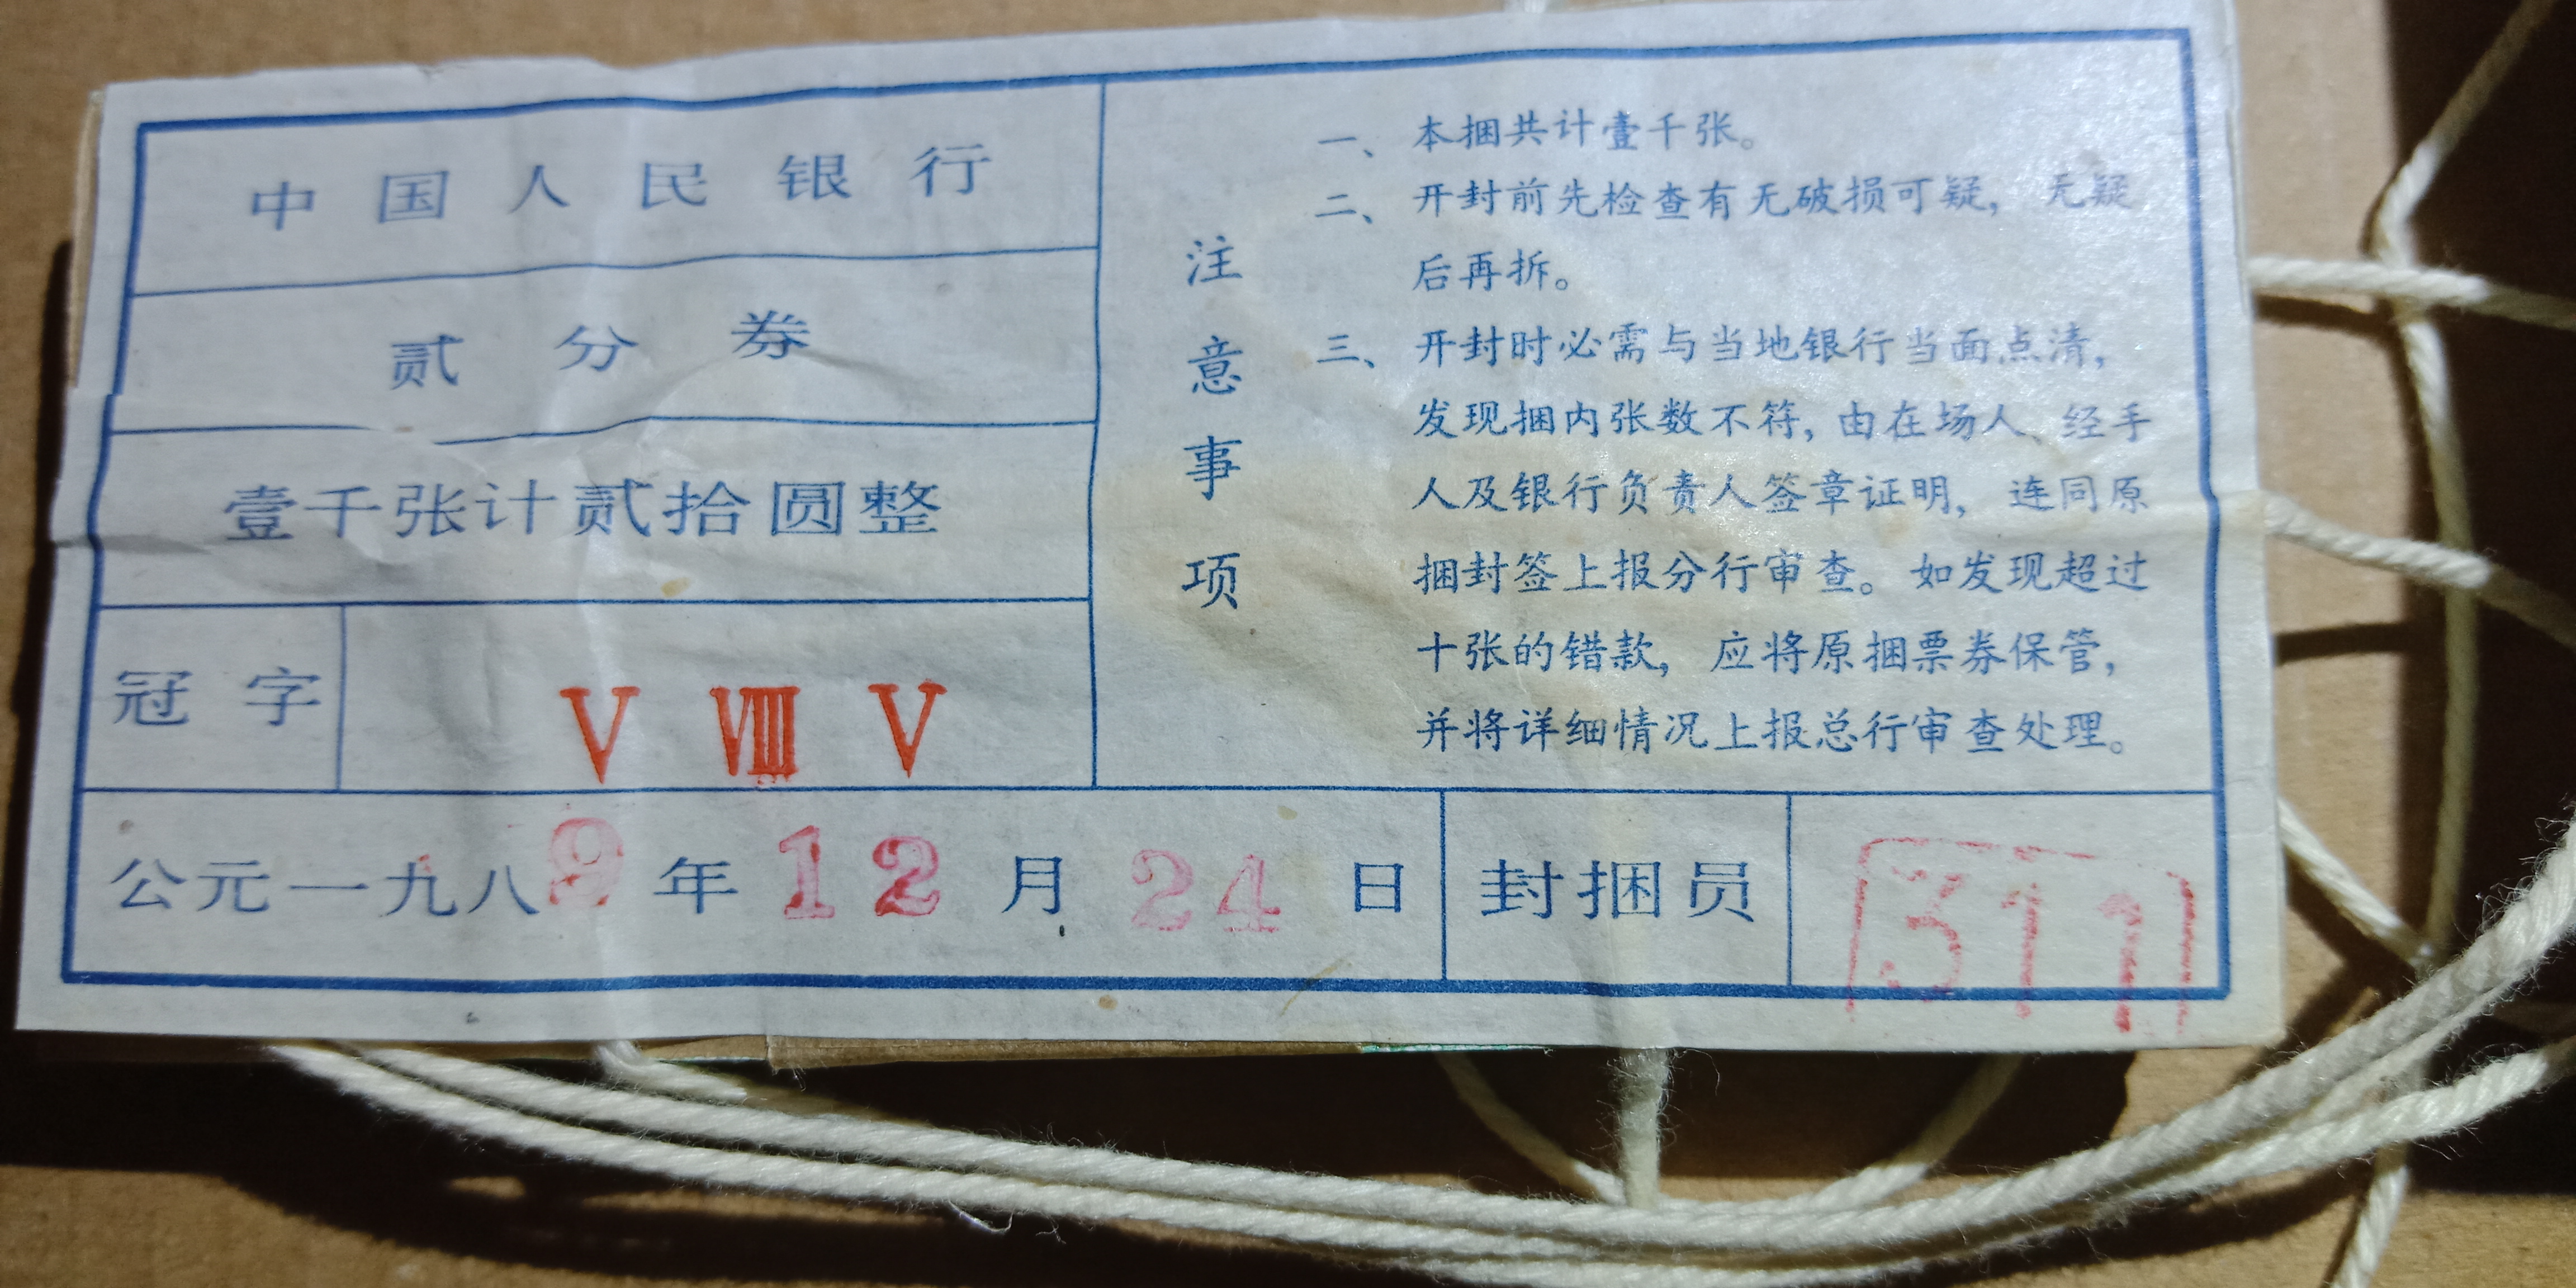 中国人民银行
贰分券
壹千张计贰拾圆整
冠字 Ⅴ Ⅷ Ⅴ
注意事项
一、本捆共计壹千张。
二、开封前先检查有无破损可疑，无疑
后再拆。
三、开封时必需与当地银行当面点清，
发现捆内张数不符，由在场人、经手
人及银行负责人签章证明，连同原
捆封签上报分行审查。如发现超过
十张的错款，应将原捆票券保管，
并将详细情况上报总行审查处理。
公元一九八9年12月24日 封捆员 311